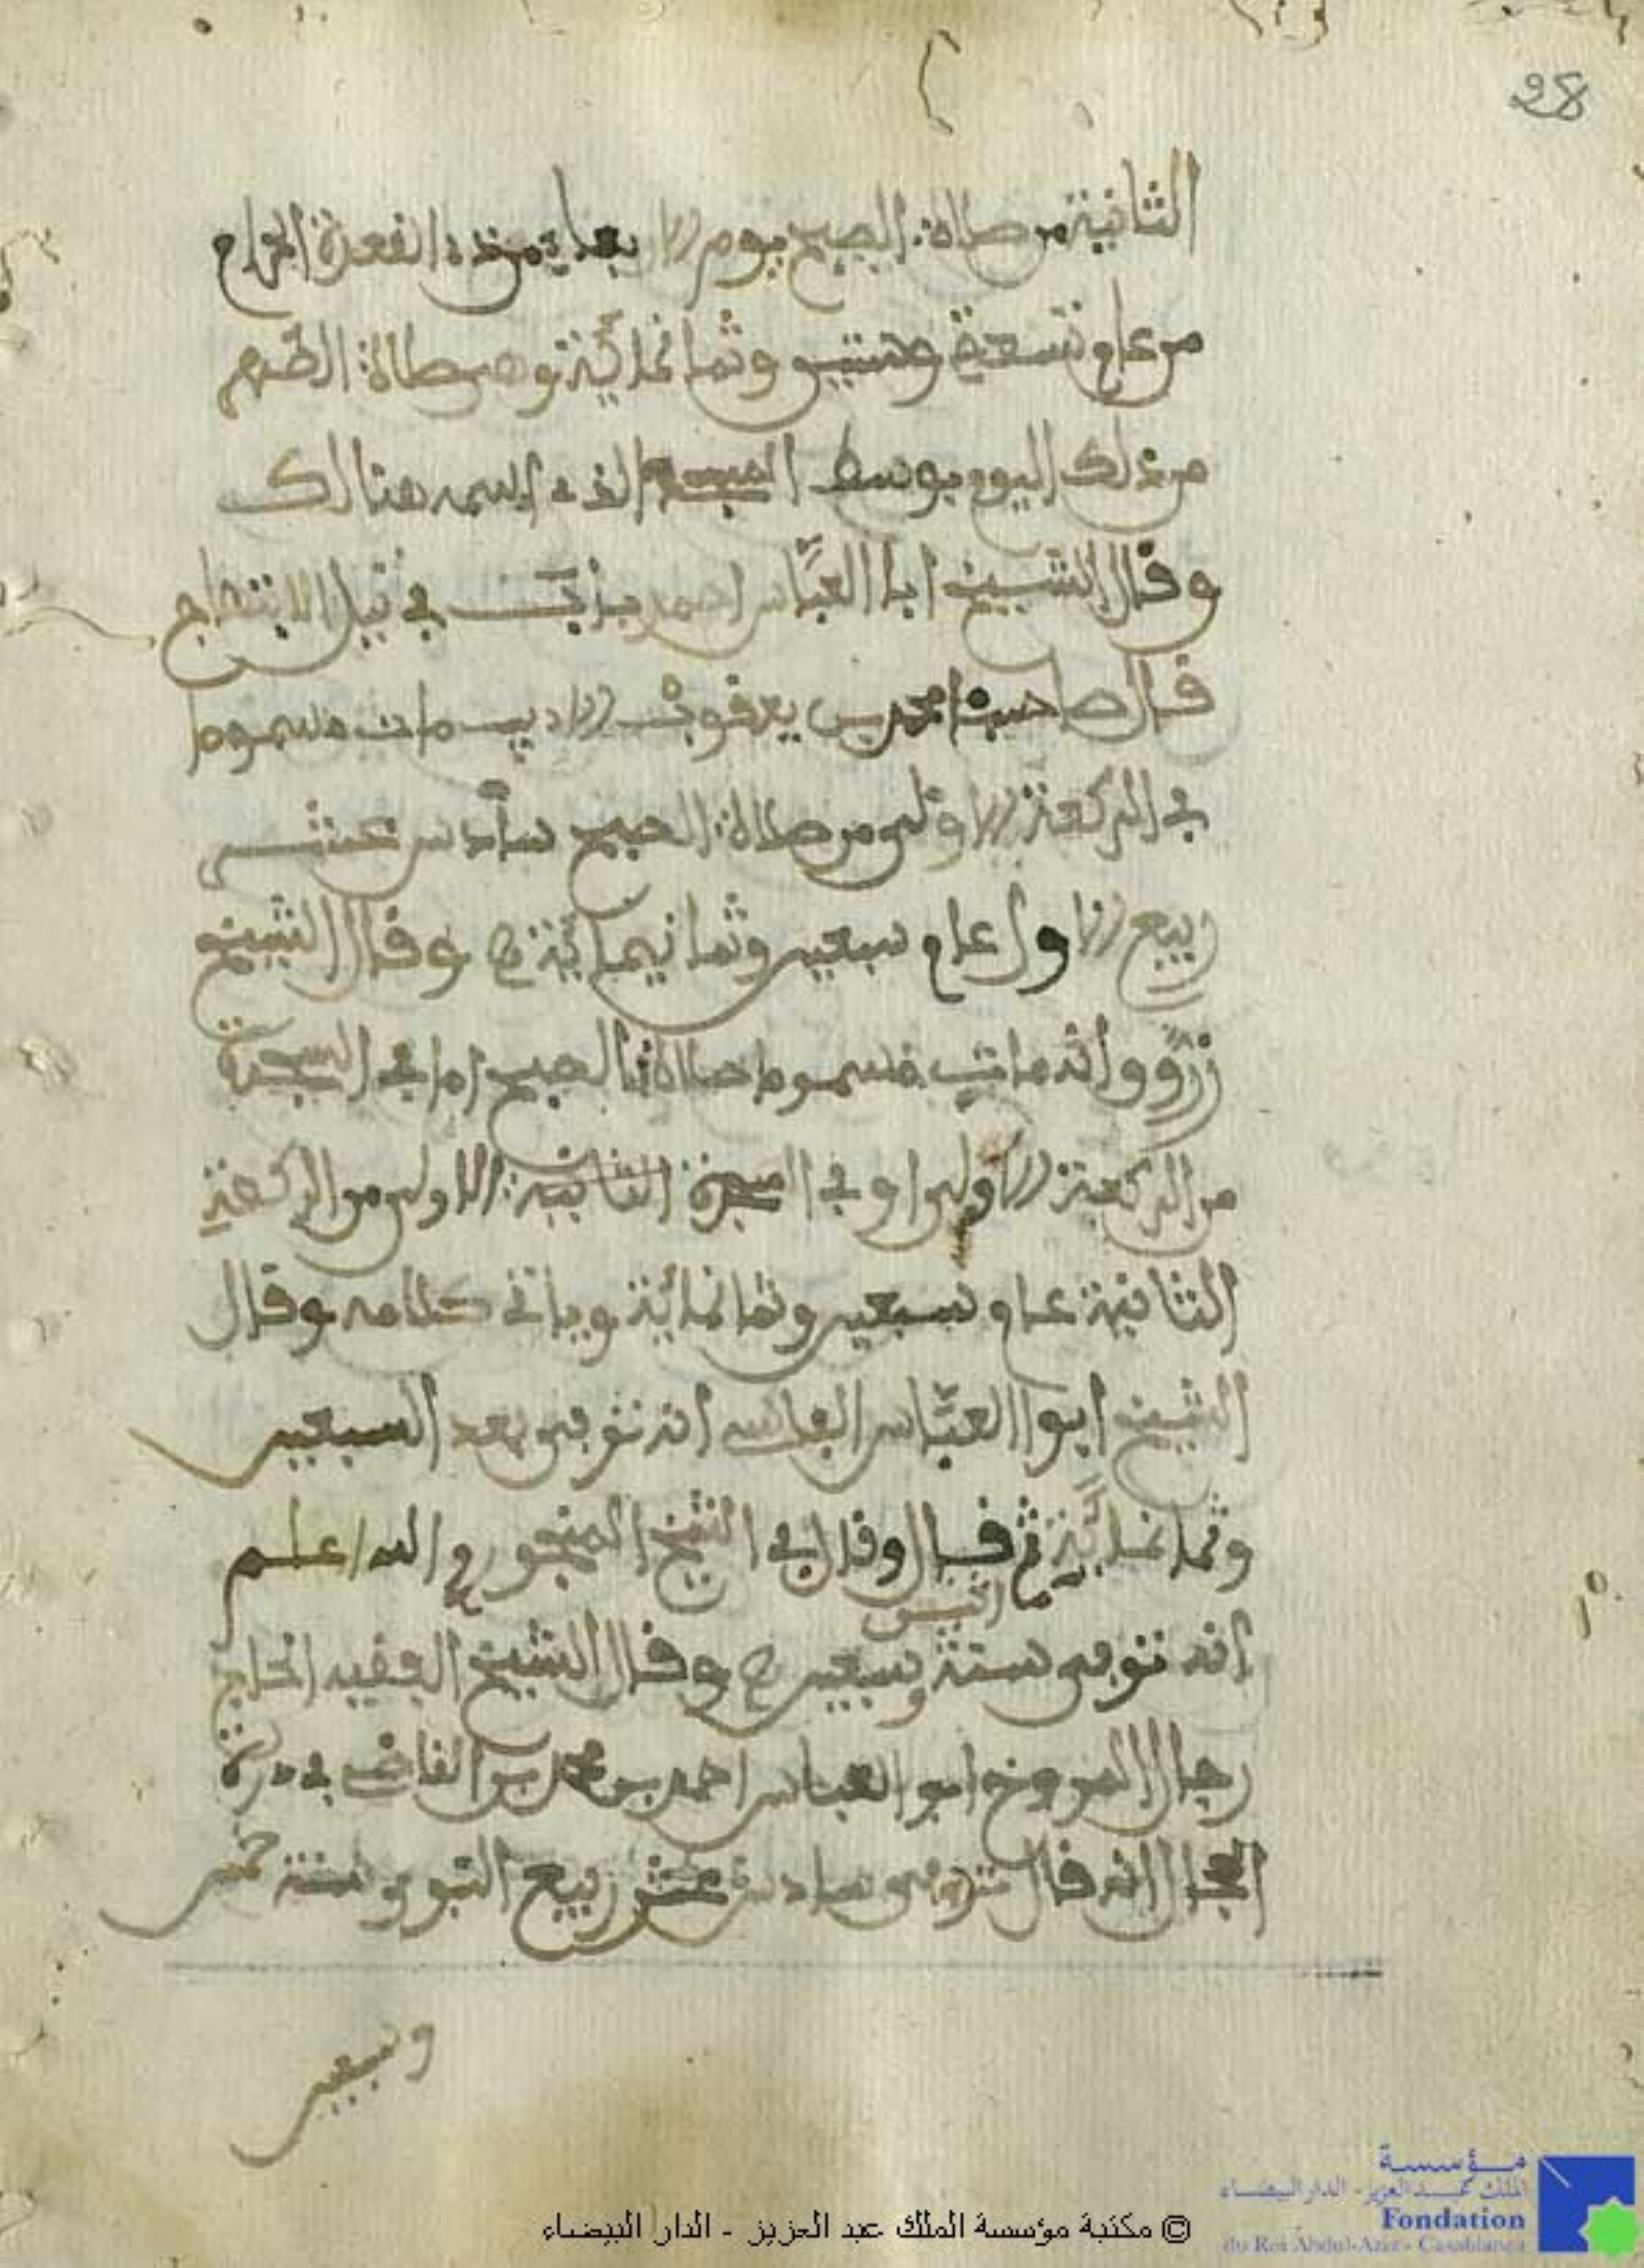 28
الثانية من صلاة الصبح يوم الاربعا من ذي القعدة الحرام
من عام تسعة وستين وثمانمائة ودفن صلاة الظهر
من ذلك اليوم بوسط المسجد الذي اسسه هنالك
وقال الشيخ ابا العباس احمد بابا في نيل الابتهاج
قال صاحبنا محمد بن يعقوب الاديب مات مسموما
في الركعة الاولى من صلاة الصبح سادس عشر
ربيع الاول عام سبعين وثمانيمائة وقال الشيخ
زروق انه مات مسموما صلاة الصبح اما في السجدة
من الركعة الاولى او في السجدة الثانية الاولى من الركعة
الثانية عام سبعين وثمانمائة وياتي كلامه وقال
الشيخ ابوا العباس الفاسي انه توفي بعد السبعين
وثمانمائة ثم قال وقال لي الشيخ المنجور والله اعلم
انه توفي سنة وسبعين وقال الشيخ الفقيه الحاج
رحال المورخ ابو العباس احمد بن محمد بن القاضي في درة
الحجال انه قال توفي سادس عشر ربيع النبوي سنة خمس
وسبعين
© مكتبة مؤسسة الملك عبد العزيز - الدار البيضاء
مؤسسة
الملك عبد العزيز - الدار البيضاء
Fondation
du Roi Abdul-Aziz - Casablanca